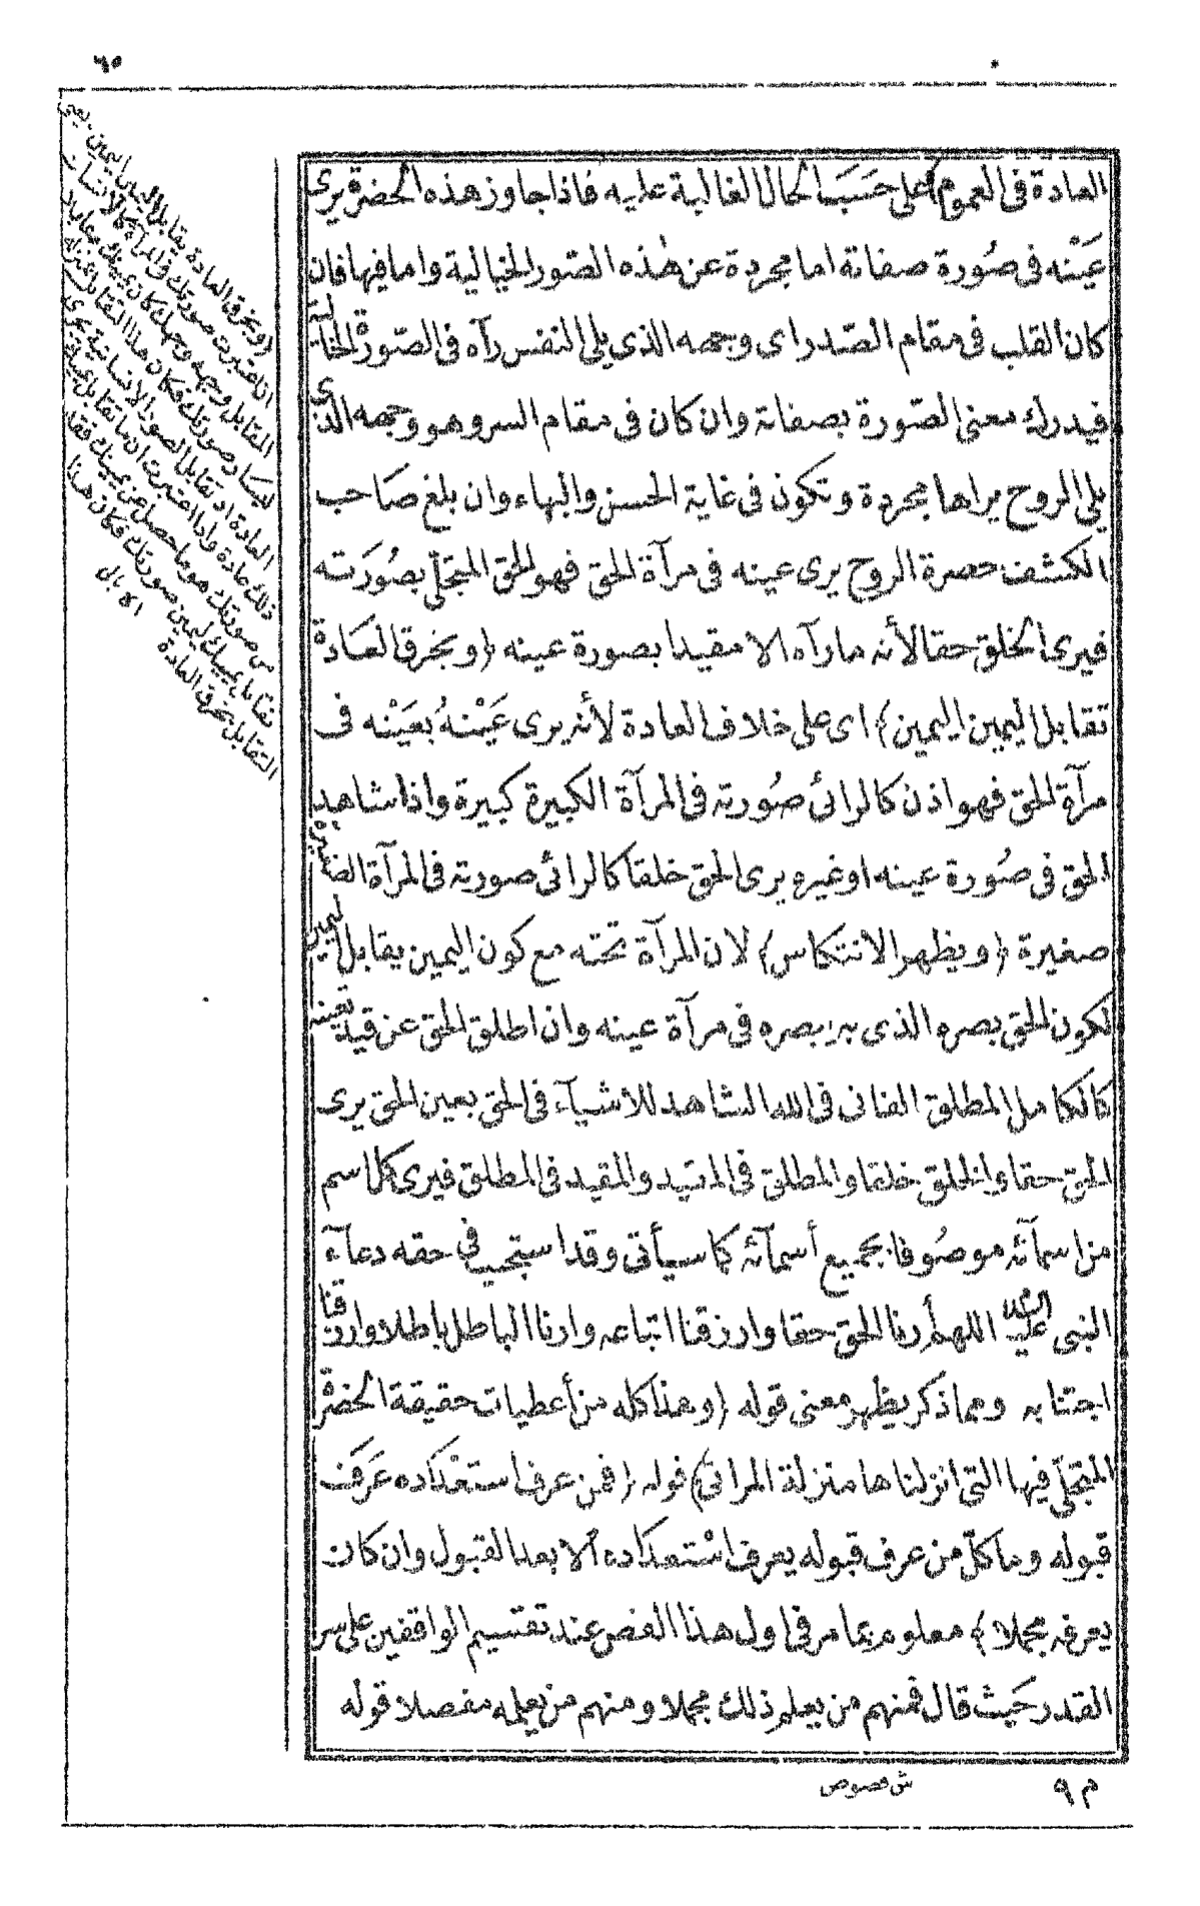 ٦٥
العادة فى العموم) على حَسَبَ الحال الغالبة عليه فاذا جاوز هذه الحضرة يرى
عَيْنه فى صُورة صفاته اما مجردة عن هٰذه الصّور الخيالية واما فيها فان
كان القلب فى مقام الصّدر اى وجهه الذى يلى النفس رآه فى الصّورة الخيالية
فيدرك معنى الصّورة بصفاته وان كان فى مقام السر وهو وجهه الذى
يلى الروح يراها مجردة وتكون فى غاية الحسن والبهاء وان بلغ صَاحب
الكشف حصرة الروح يرى عينه فى مرآة الحق فهو الحق المتجلّى بصُورَته
فيرى الخلق حقا لأنه مارآه الا مقيدا بصورة عينه ﴿وبخرق العَادة
تقابل اليمين اليمين﴾ اى على خلاف العادة لأنه يرى عَيْنهُ بعَيْنه فى
مرآة الحق فهو اذن كالرائى صُورته فى المرآة الكبيرة كبيرة واذا شاهد
الحق فى صُورة عينه او غيره يرى الحق خلقا كالرائى صورته فى المرآة الصغيرة
صغيرة ﴿ويظهر الانتكاس﴾ لان المرآة تحته مع كون اليمين يقابل اليمين
لكون الحق بصره الذى به يبصره فى مرآة عينه وان اطلق الحق عن قيد تعينه
كالكامل المطلق الفانى فى الله الشاهد للاشيآء فى الحق بعين الحق يرى
الحق حقا والخلق خلقا والمطلق فى المقيد والمقيد فى المطلق فيرى كل اسم
من اسمآئه موصُوفا بجميع أسمآئه كما سيأتى وقد استجيب فى حقه دعآء
النبى عليه السلام اللهم أرنا الحق حقا وارزقنا اتباعه وارنا الباطل باطلا وارزقنا
اجتنابه ومما ذكر يظهر معنى قوله ﴿وهذا كله من أعطيات حقيقة الحضرة
المتجلّى فيها التى انزلناها منزلة المرائى﴾ قوله ﴿فمن عرف استعْدَاده عَرَف
قبوله وما كلّ من عرف قبوله يعرف اسْتعدَاده الا بعد القبول وان كان
يعرفه مجملا﴾ معلوم بما مر فى اول هذا الفص عند تقسيم الواقفين على سر
القدر حَيث قال فمنهم من يعلم ذلك مجملا ومنهم من يعلمه مفصلا قوله
م ٩
ش فصوص
(وبخرق العادة تقابل اليمين اليمين) يعنى
اذا اعتبرت صورتك فى المرآة كالانسان
المقابل وجهه وجهك كان يمينك مقابلا
ليسار صورتك فكان هذا التقابل بمنزلة
العادة اذ تقابل الصور الانسانية يجرى
ذلك عادة واذا اعتبرت ان ما تقابل يمينك
من صورتك هو ما حصل عن يمينك فقد
تقابل يمينك ليمين صورتك فكان هذا
التقابل بخرق العادة
اه بالى